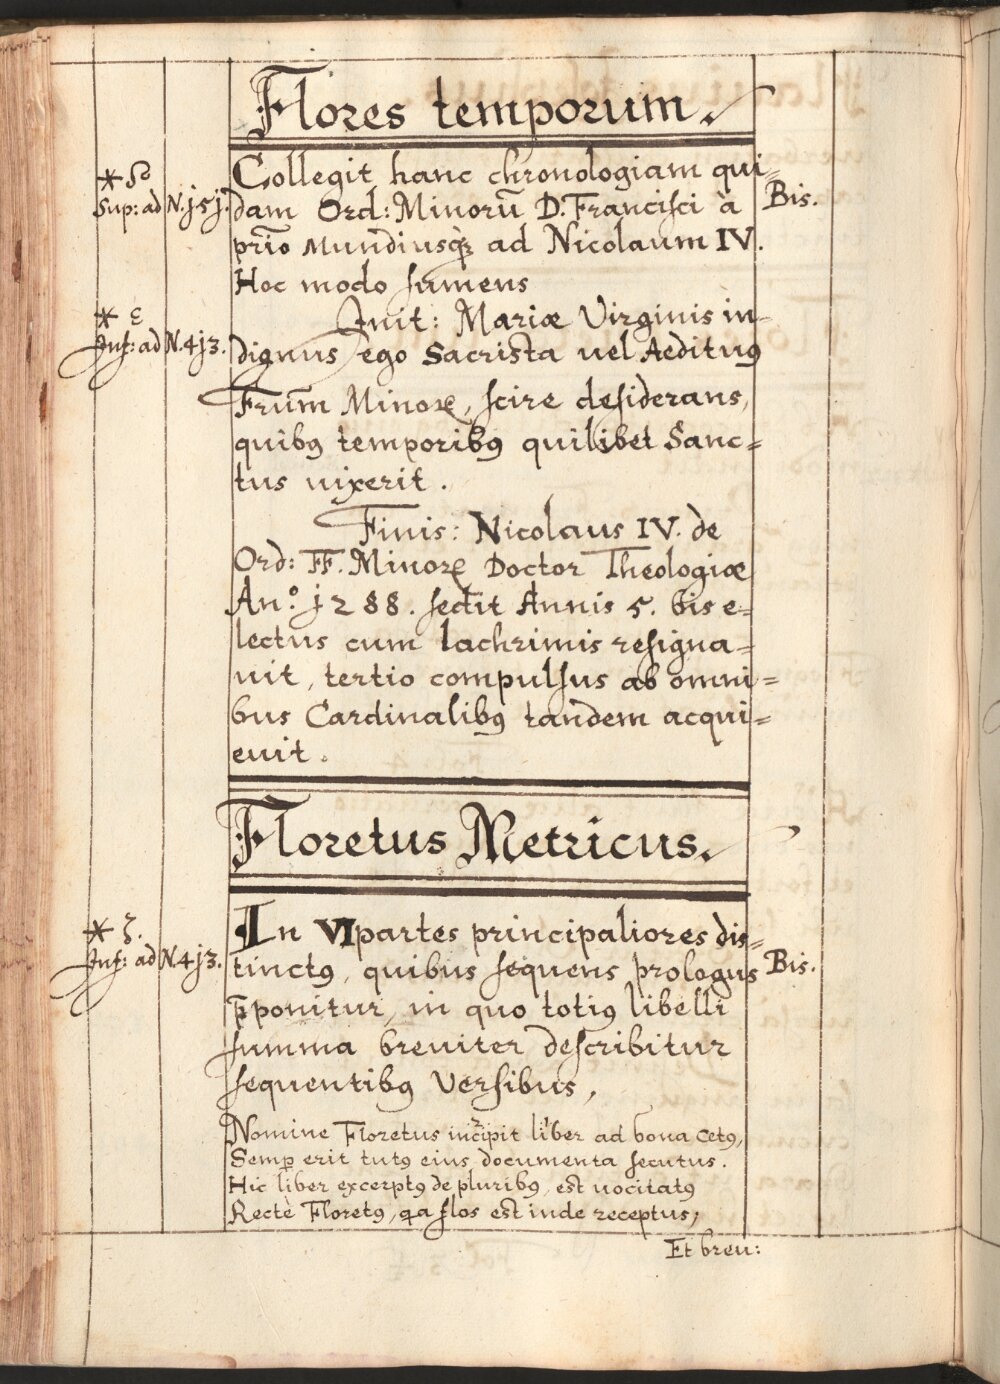 Flores temporum.
* δ
Sup: ad N. j5j.
Collegit hanc chronologiam qui=
dam Ord: Minorū D. Francisci à
Bis.
prīo Mundi usqꝫ ad Nicolaum IV.
Hoc modo sumens
* ε
Inf: ad N. 4j3.
Init: Mariæ Virginis in=
dignus ego Sacrista uel Aedituꝰ
Frum̄ Minoꝝ, scire desiderans,
quibꝰ temporibꝰ quilibet Sanc=
tus uixerit.
Finis: Nicolaus IV. de
Ord: FF. Minoꝝ Doctor Theologiæ
An.º j288. sedit Annis 5. bis e=
lectus cum lachrimis resigna=
uit, tertio compulsus ab omni=
bus Cardinalibꝰ tandem acqui=
euit.
Floretus Metricus.
* ζ.
Inf: ad N. 4j3.
In VI partes principaliores dis=
tinctꝰ, quibus sequens prologus
Bis.
p̄ponitur, in quo totiꝰ libelli
summa breuiter describitur
sequentibꝰ Versibus,
Nomine Floretus incipit liber ad bona cetꝰ,
Semꝑ erit tutꝰ eius documenta secutus.
Hic liber excerptꝰ de pluribꝰ, est uocitatꝰ
Rectè Floretꝰ, qa flos est inde receptus;
Et breu: